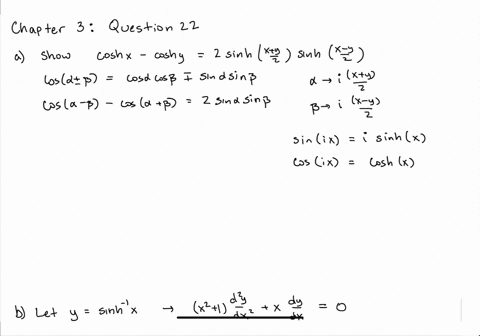 Chapter 3: Question 22
a) Show cosh x - cosh y = 2 sinh (x+y/2) sinh (x-y/2)
cos(α±β) = cosα cosβ ∓ sinα sinβ
α → i (x+y)/2
cos(α-β) - cos(α+β) = 2 sinα sinβ
β → i (x-y)/2
sin(ix) = i sinh(x)
cos(ix) = cosh(x)
b) Let y = sinh⁻¹x → (x²+1) d²y/dx² + x dy/dx = 0